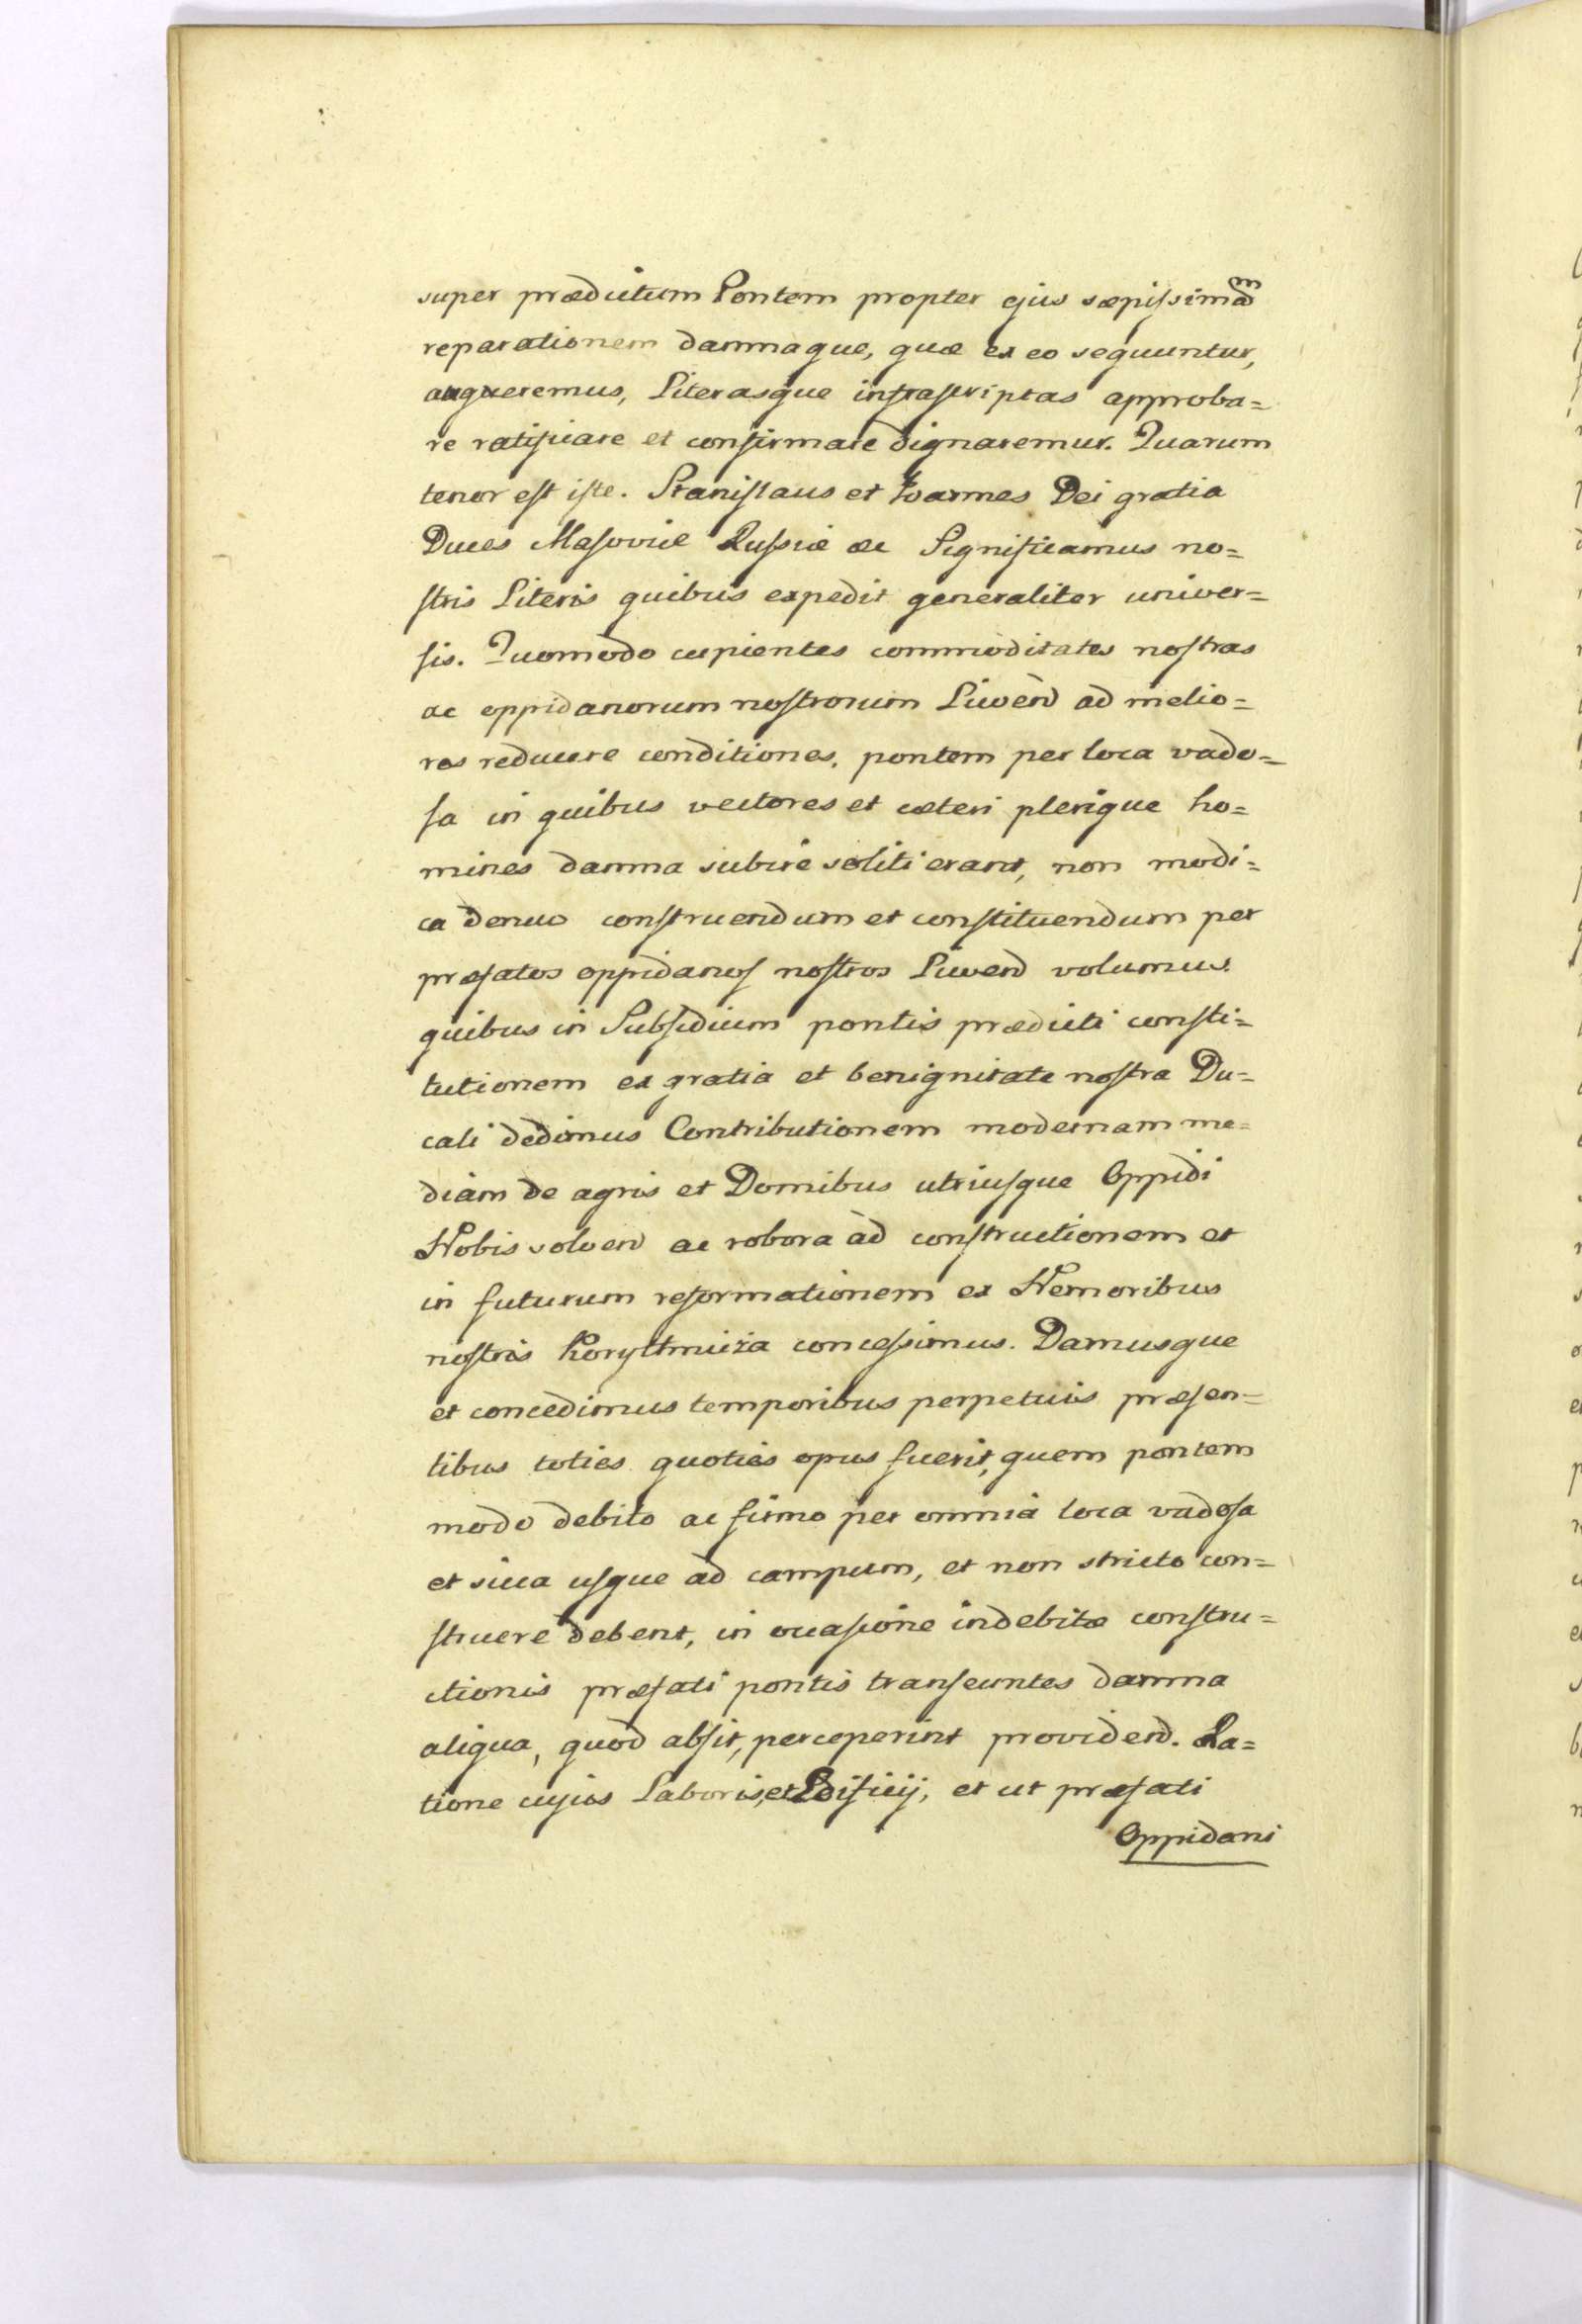 super prædictum Pontem propter ejus sæpissimam
reparationem damnaque, quæ ex eo sequuntur,
augueremus, Literasque infrascriptas approba=
re ratificare et confirmare dignaremur. Quarum
tenor est iste. Stanislaus et Ioannes Dei gratia
Duces Masoviæ Russiæ &c Significamus no=
stris Literis quibus expedit generaliter univer=
sis. Quomodo cupientes commoditates nostras
ac oppidanorum nostrorum Liwen̄ ad melio=
res reducere conditiones, pontem per loca vado=
sa in quibus vectores et cæteri plerique ho=
mines damna subire soliti erant, non modi=
ca denuo construendum et constituendum per
præfatos oppidanos nostros Liwen̄ volumus.
quibus in Subsidium pontis prædicti consti=
tutionem ex gratia et benignitate nostra Du=
cali dedimus Contributionem modernam me=
diam de agris et Domibus utriusque Oppidi
Nobis solven̄ ac robora ad constructionem et
in futurum reformationem ex Nemoribus
nostris Korytnicza concessimus. Damusque
et concedimus temporibus perpetuis præsen=
tibus toties quoties opus fuerit, quem pontem
modo debito ac firmo per omnia loca vadosa
et sicca usque ad campum, et non stricto con=
struere debent, in occasione indebitæ constru=
ctionis præfati pontis transeuntes damna
aliqua, quod absit, perceperint providen̄. Ra=
tione cujus Laboris, et Edificij, et ut præfati
Oppidani